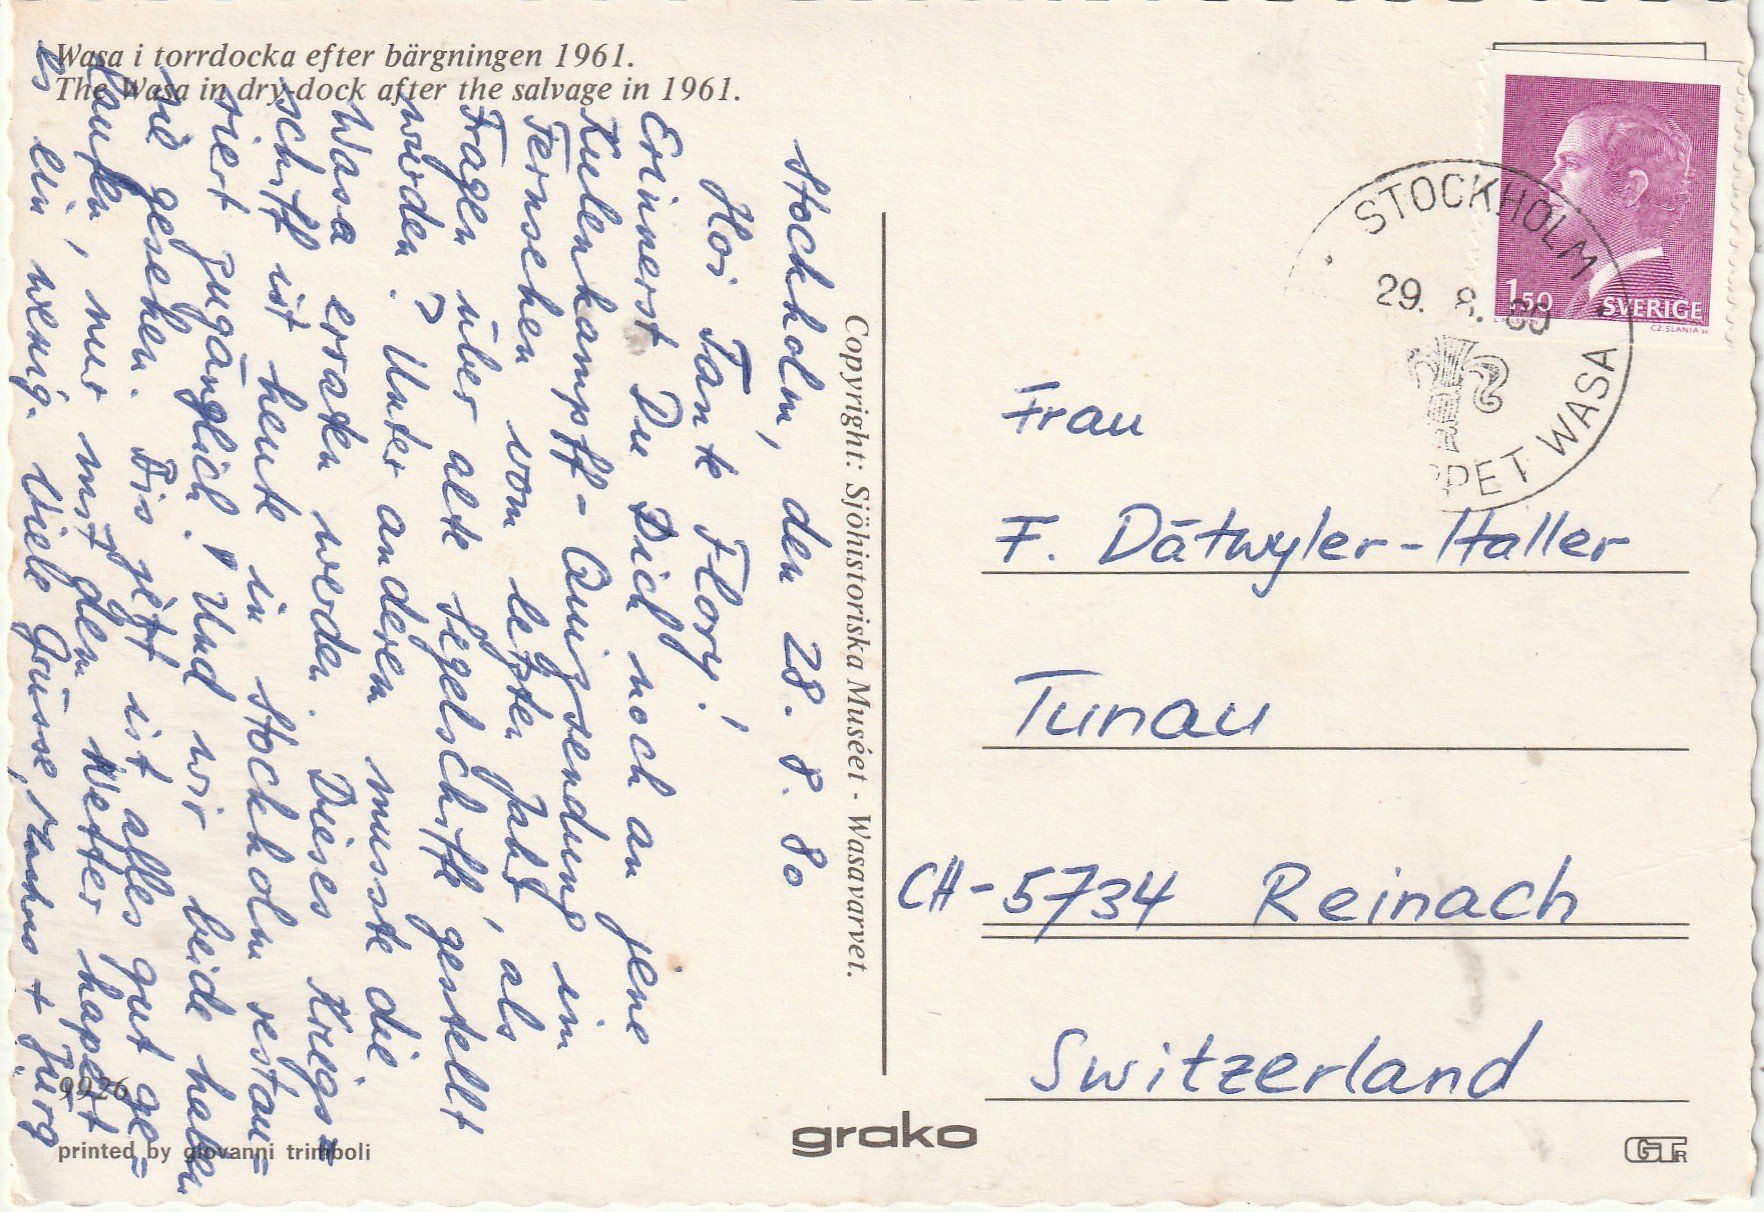 Wasa i torrdocka efter bärgningen 1961.
The Wasa in dry-dock after the salvage in 1961.
Stockholm, den 28. 8. 80
Hoi Tante Flory!
Erinnerst Du Dich noch an jene
Kulenkampff-Quizsendung im
Fernsehen vom letzten Jahr, als
Fragen über alte Segelschiffe gestellt
wurden? Unter anderem musste die
Wasa erraten werden. Dieses Kriegs=
schiff ist heute in Stockholm restau=
riert zugänglich. Und wir beide haben
sie gesehen. Bis jetzt ist alles gut ge=
laufen, nur mit dem Wetter hapert
es ein wenig. Viele Grüsse, + Jürg
Copyright: Sjöhistoriska Muséet - Wasavarvet.
SVERIGE
1.50
CZ.SLANIA
STOCKHOLM
29. 8. 80
PPET WASA
Frau
F. Dätwyler-Haller
Tunau
CH-5734 Reinach
Switzerland
9926
printed by giovanni trimboli
grako
GTR